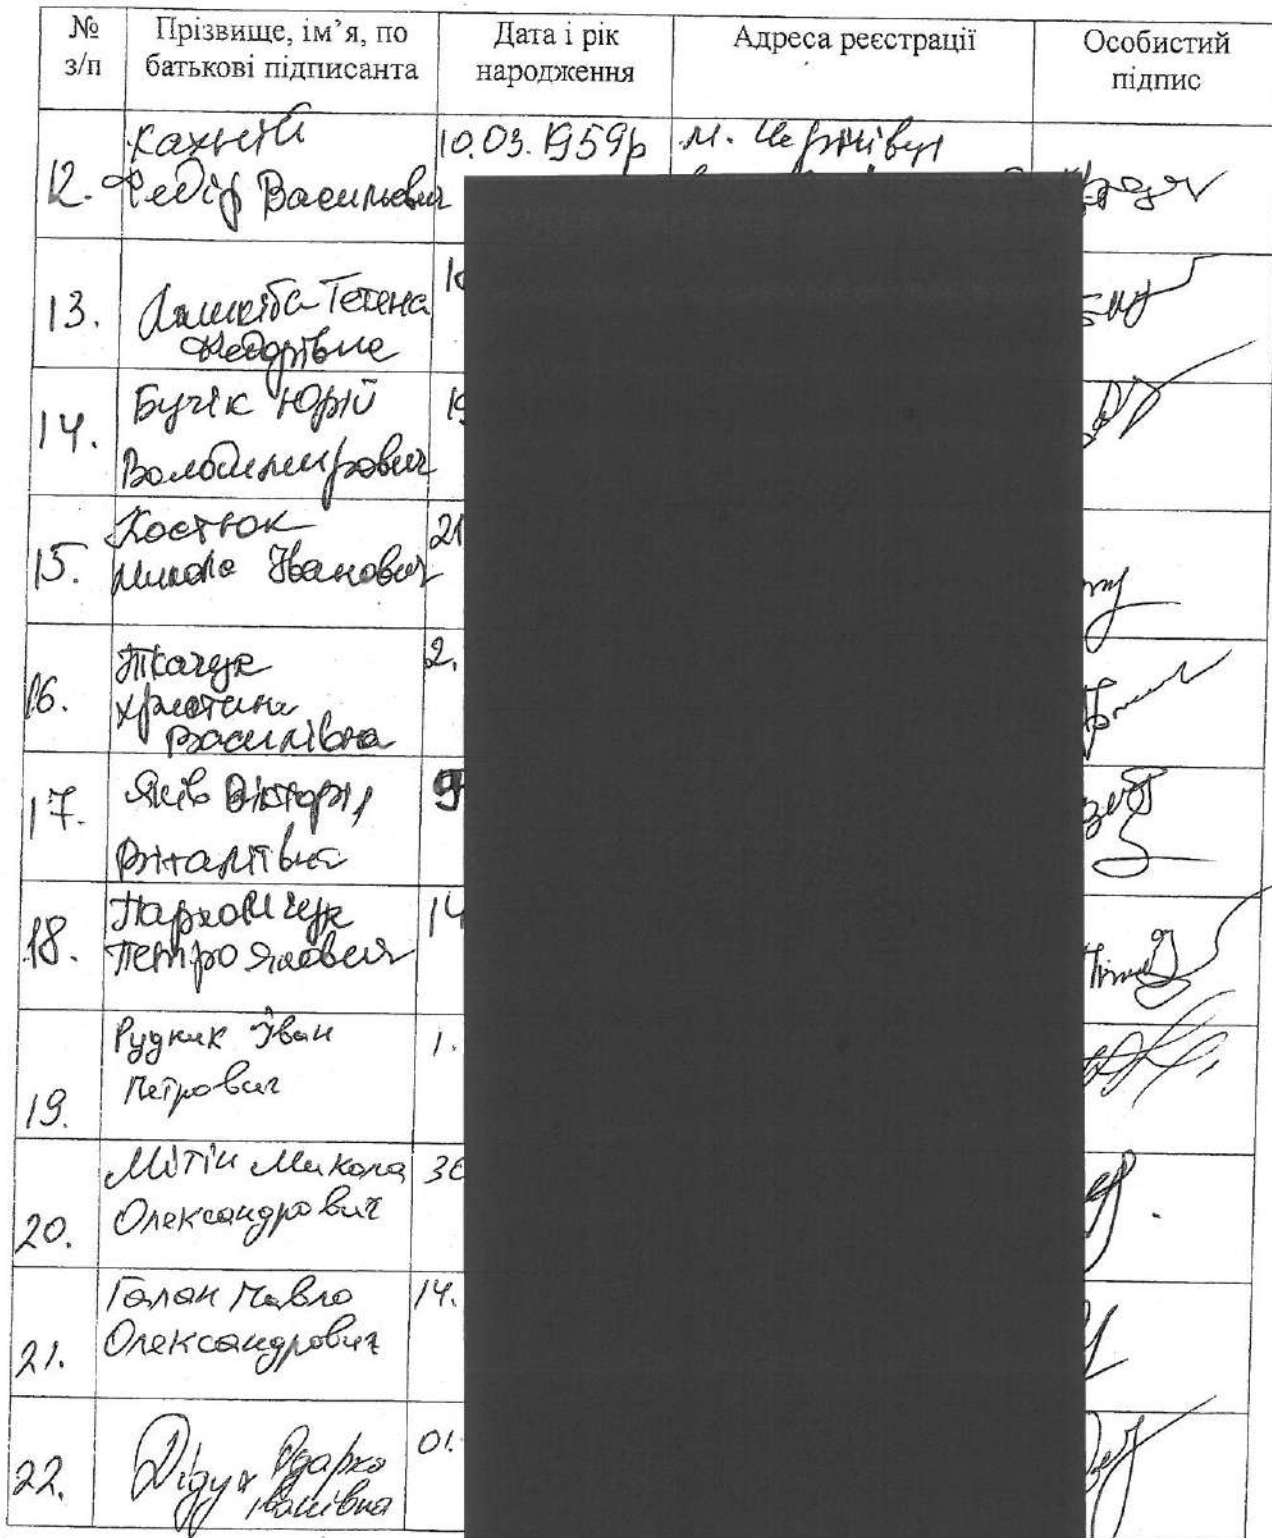 № з/п
Прізвище, ім’я, по
батькові підписанта
Дата і рік
народження
Адреса реєстрації
Особистий
підпис
12.
Федір Васильович
10.03.1959р
м. Чернівці
13.
Тетяна
Федорівна
14.
Бучік Юрій
Володимирович
15.
Костюк
Микола Іванович
21
16.
Ткачук
Христина
Василівна
2.
17.
Яків Вікторія
Віталіївна
9
18.
Пархомчук
Петро Якович
14
19.
Рудник Іван
Петрович
1.
20.
Мітін Микола
Олександрович
30
21.
Галан Павло
Олександрович
14.
22.
Дідух Одарка
Іванівна
01.